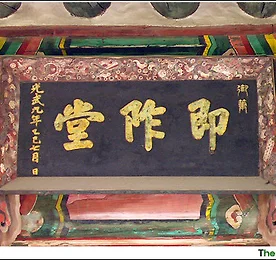 御筆
即阼堂
光武九年乙巳七月 日
The